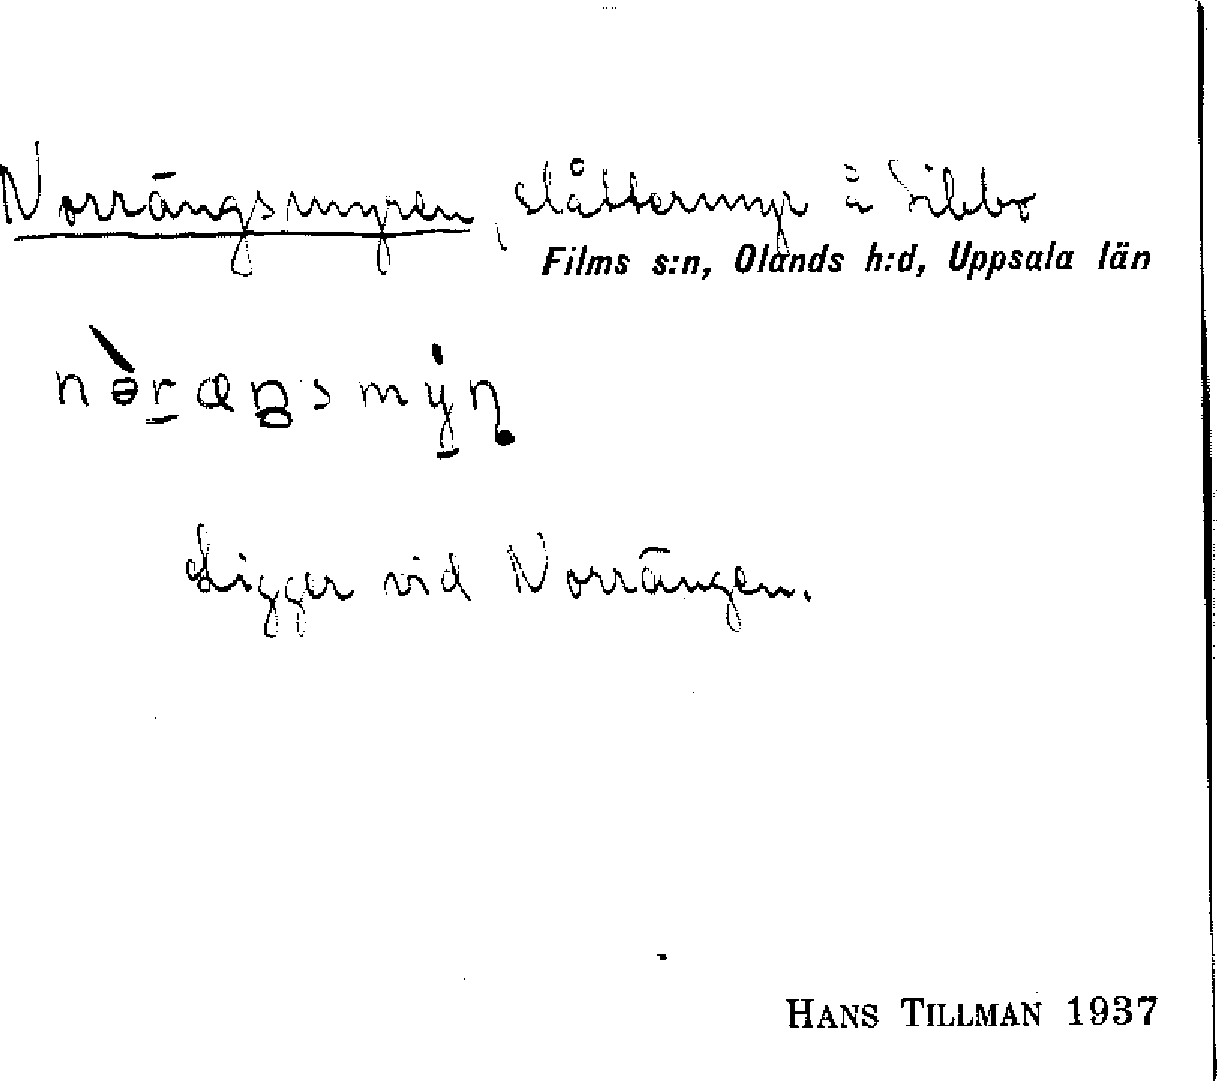 Norrängsmyren, slåttermyr å Sibbo
Films s:n, Olands h:d, Uppsala län
Ligger vid Norrängen.
HANS TILLMAN 1937